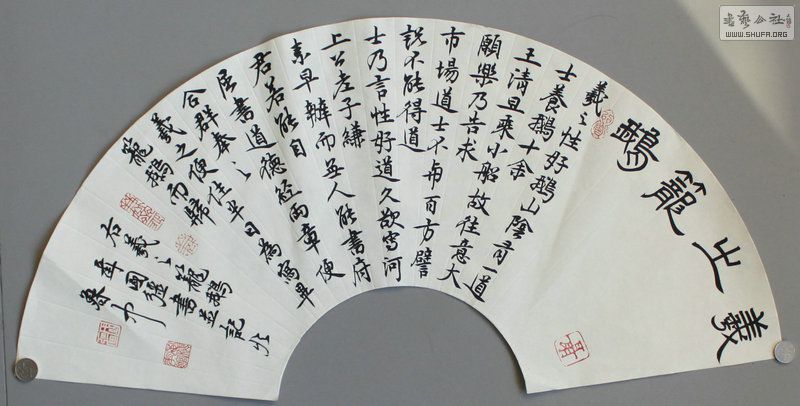 書藝公社
WWW.SHUFA.ORG
羲之籠鵝
羲之性好鵝山陰有一道
士養鵝十余
王清旦乘小船故往意大
願樂乃告求
市場道士不與百方譬
說不能得道
士乃言性好道久欲寫河
上公老子縑
素早辦而無人能書府
君若能自
屈書道德經兩章便
合群奉
羲之便住半日為寫畢
籠鵝而歸
右羲之籠鵝
書並記於
魯中